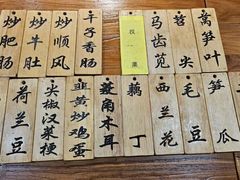 炒肥肠
炒牛肚
炒顺风
子香肠
菜
马齿苋
苕尖
莴笋叶
荷兰豆
尖椒汉菜梗
韭黄炒鸡蛋
菱角木耳
藕丁
西兰花
毛豆
笋瓜